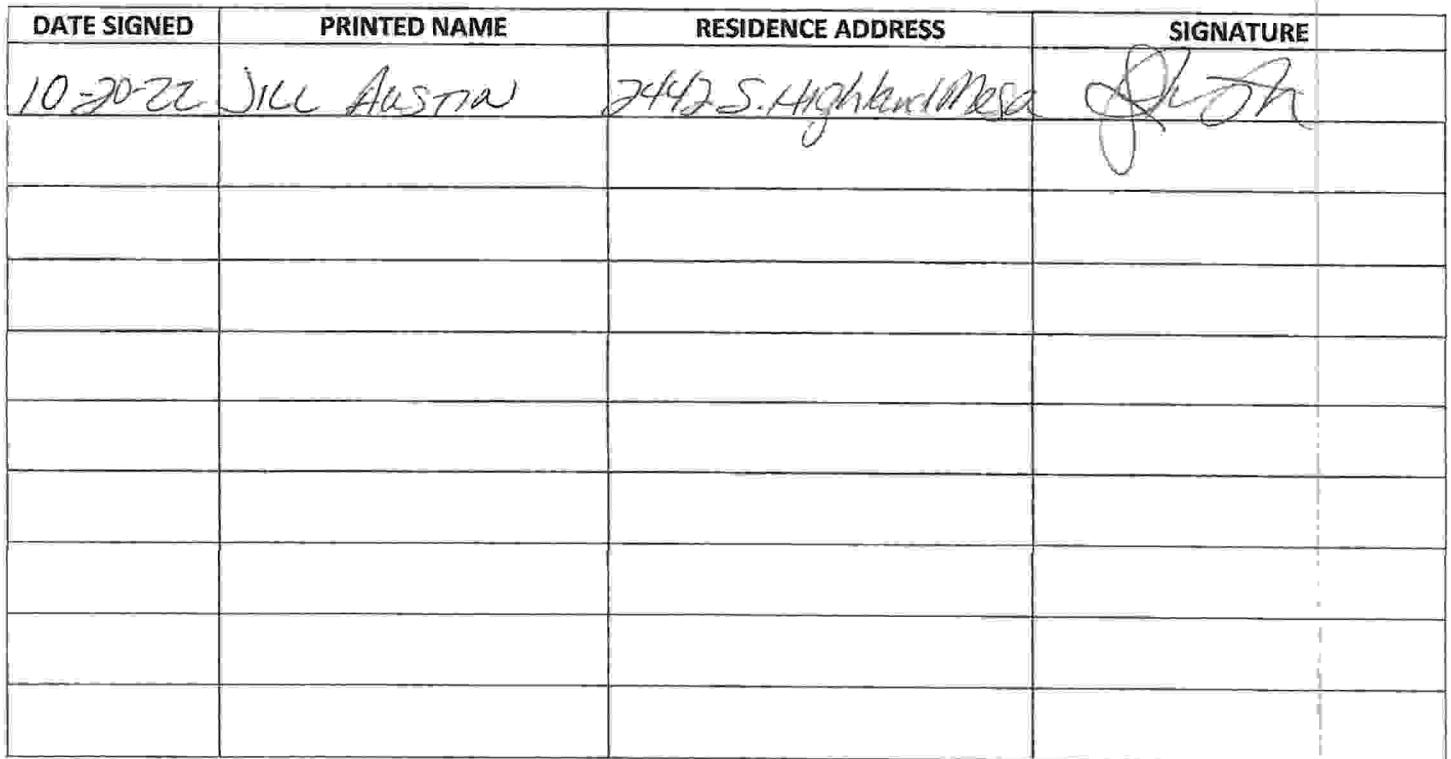 DATE SIGNED PRINTED NAME RESIDENCE ADDRESS SIGNATURE
10-20-22 JILL AUSTIN 2442 S. Highland Mesa